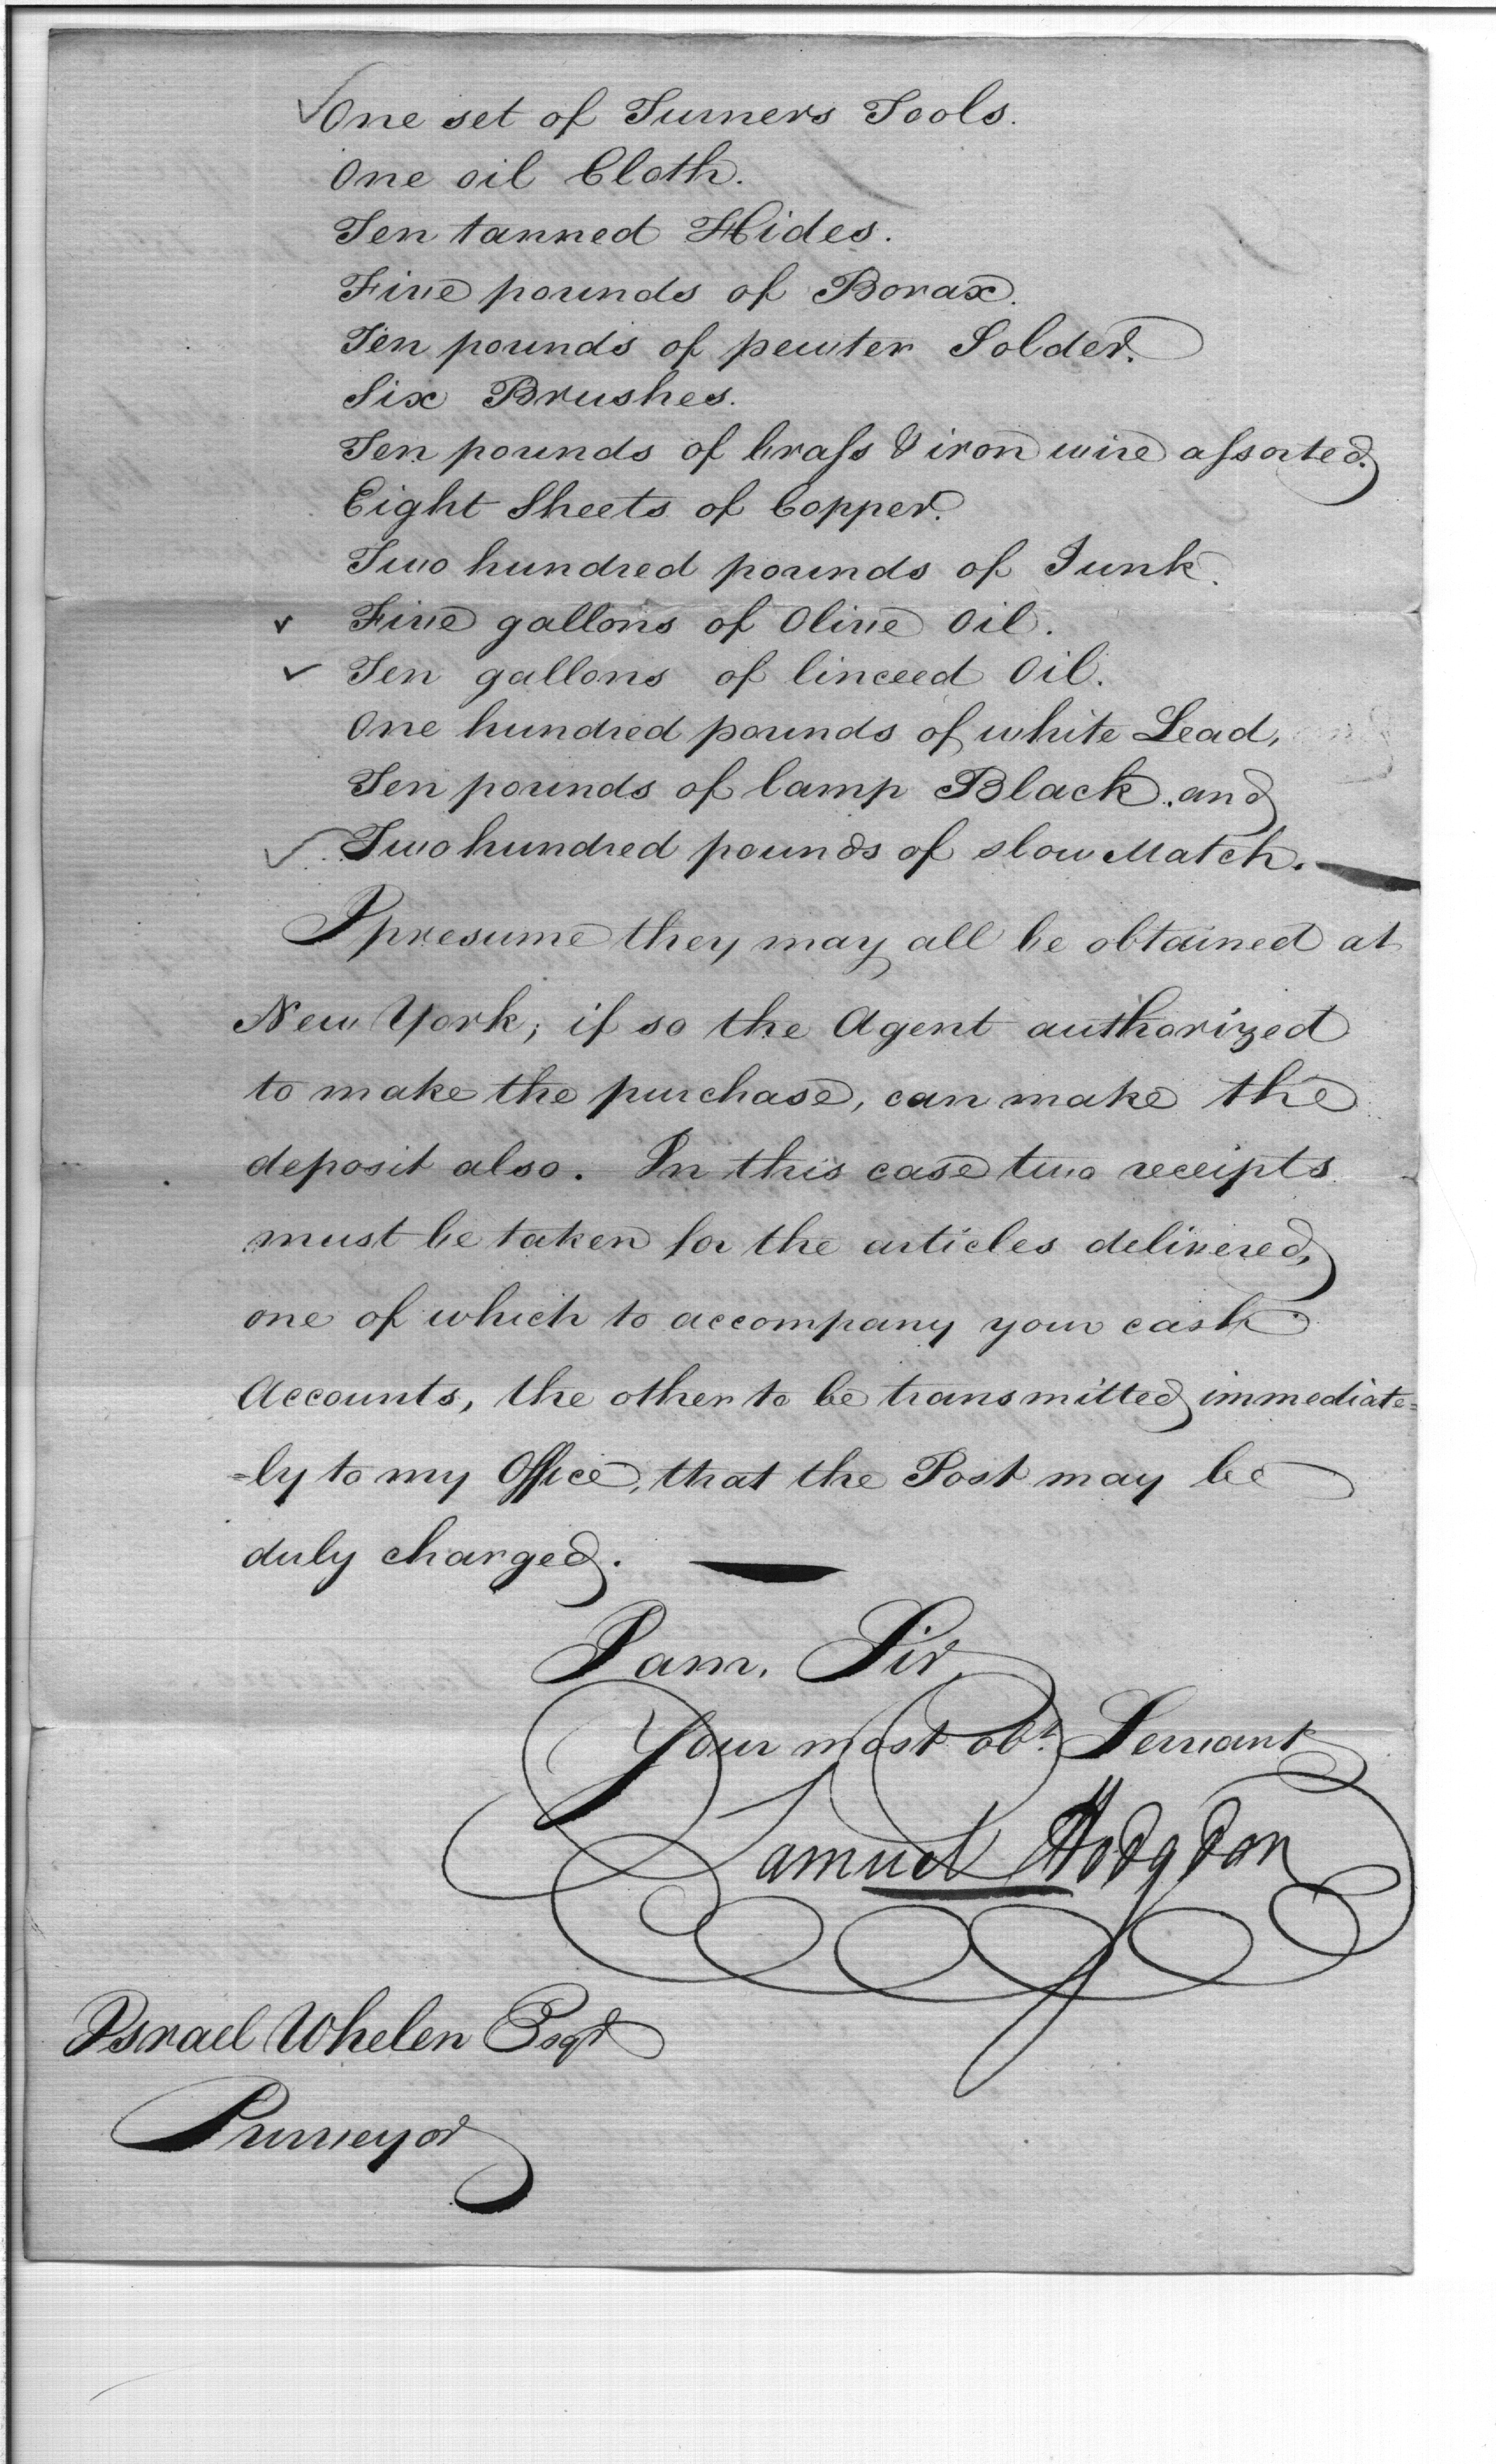 ✓ One set of Turners Tools.
One oil Cloth.
Ten tanned Hides.
Five pounds of Borax.
Ten pounds of pewter Solder.
Six Brushes.
Ten pounds of braſs & iron wire aſsorted.
Eight Sheets of Copper.
Two hundred pounds of Junk.
✓ Five gallons of Olive Oil.
✓ Ten gallons of linceed Oil.
One hundred pounds of white Lead,
Ten pounds of lamp Black, and
✓ Two hundred pounds of slow Match.
I presume they may all be obtained at
New York; if so the Agent authorized
to make the purchase, can make the
deposit also. In this case two receipts
must be taken for the articles delivered,
one of which to accompany your cash
Accounts, the other to be transmitted immediate=
=ly to my Office, that the Post may be
duly charged.
I am, Sir,
Your most obt. Servant
Samuel Hodgdon
Israel Whelen Esqr
Purveyor